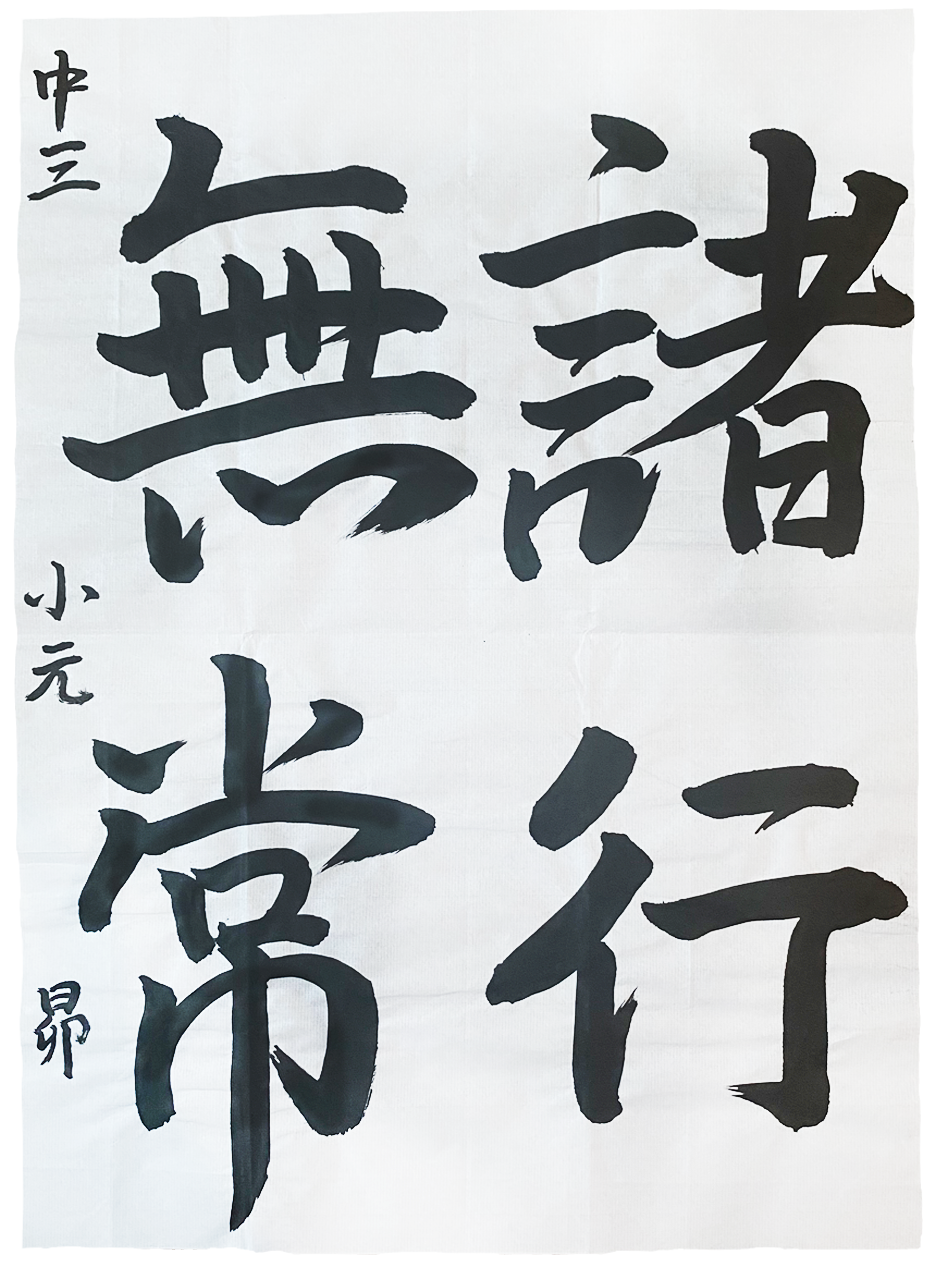 諸行
無常
中三 小元 昴